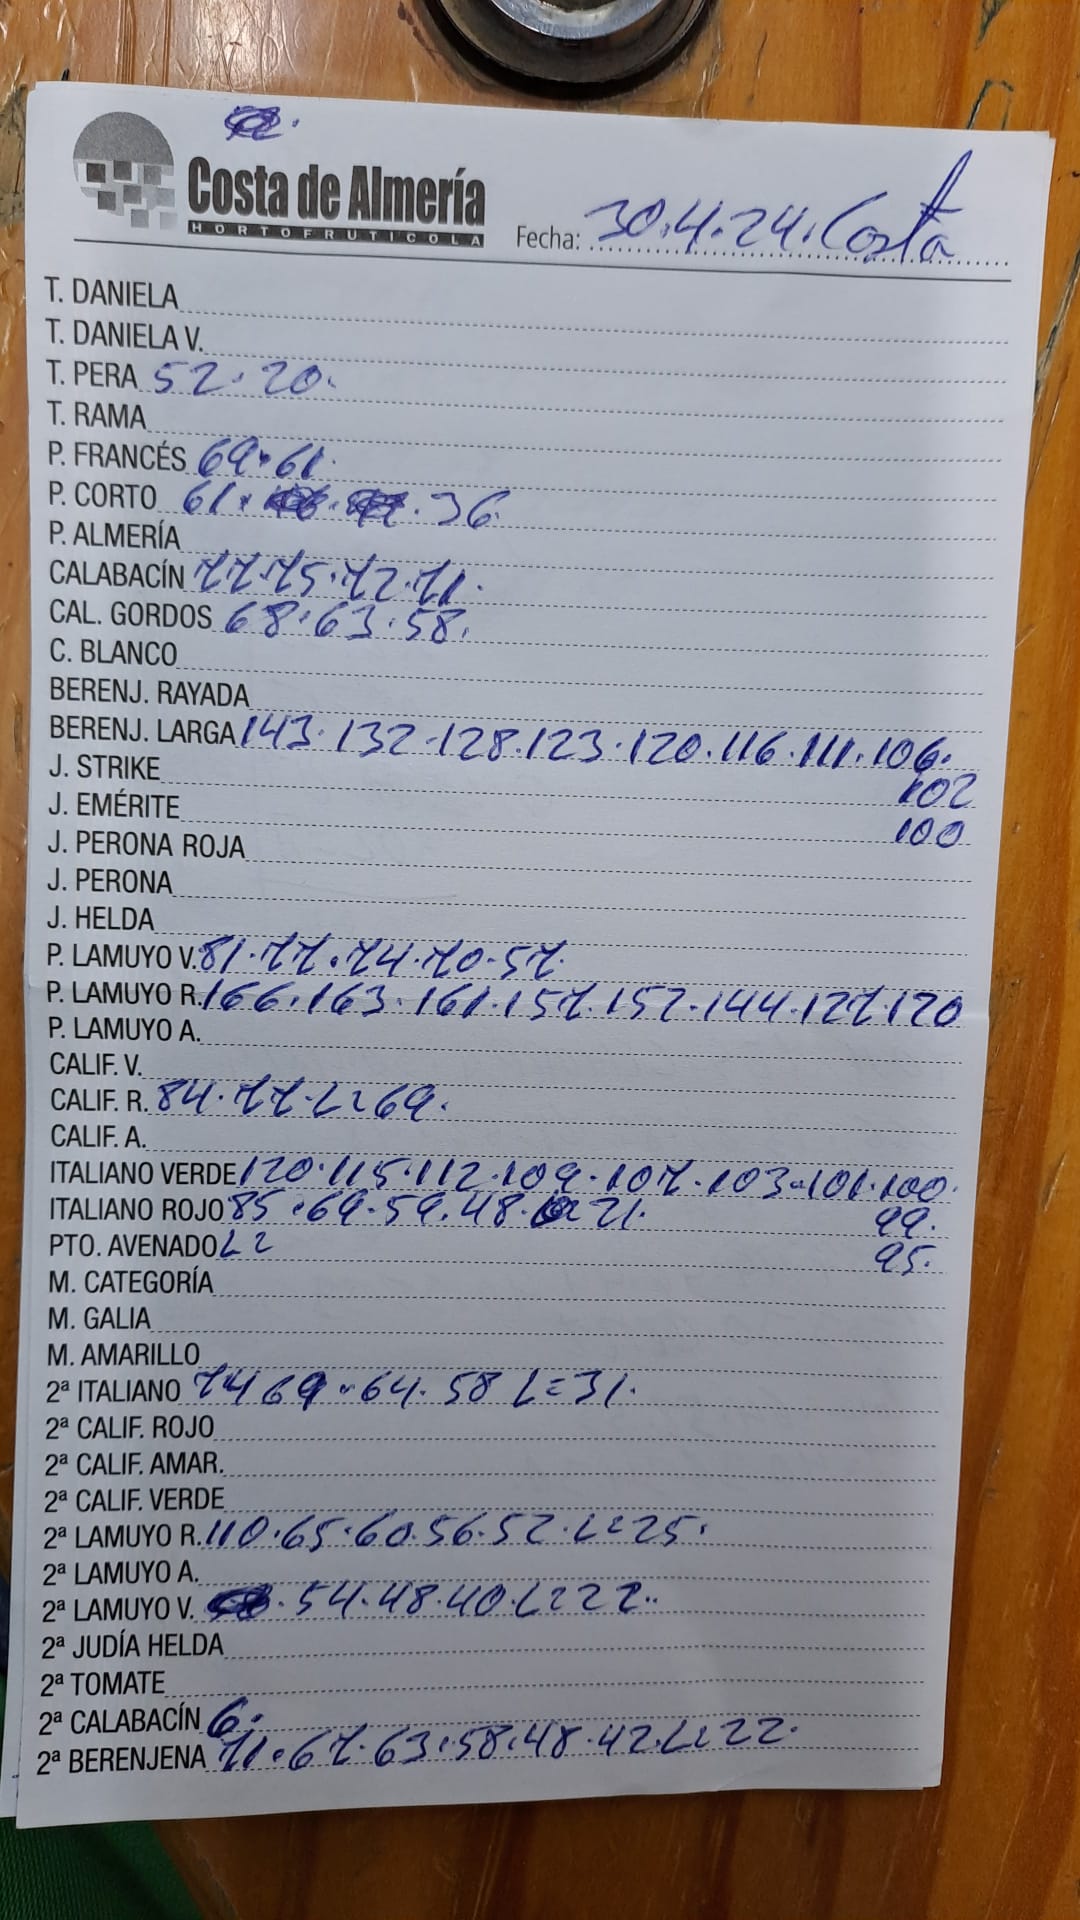 Costa de Almería
HORTOFRUTÍCOLA
Fecha: 30.4.24. Costa
T. DANIELA
T. DANIELA V.
T. PERA 52. 20.
T. RAMA
P. FRANCÉS 69. 61.
P. CORTO 61. 36.
P. ALMERÍA
CALABACÍN 77. 75. 72. 71.
CAL. GORDOS 68. 63. 58.
C. BLANCO
BERENJ. RAYADA
BERENJ. LARGA 143. 132. 128. 123. 120. 116. 111. 106.
J. STRIKE 102
J. EMÉRITE 100
J. PERONA ROJA
J. PERONA
J. HELDA
P. LAMUYO V. 81. 77. 74. 70. 57.
P. LAMUYO R. 166. 163. 161. 157. 152. 144. 127. 120
P. LAMUYO A.
CALIF. V.
CALIF. R. 84. 77. L= 69.
CALIF. A.
ITALIANO VERDE 120. 115. 112. 109. 107. 103. 101. 100.
ITALIANO ROJO 85. 69. 59. 48. 21. 99.
PTO. AVENADO L 2 95.
M. CATEGORÍA
M. GALIA
M. AMARILLO
2ª ITALIANO 74 69. 64. 58 L=31.
2ª CALIF. ROJO
2ª CALIF. AMAR.
2ª CALIF. VERDE
2ª LAMUYO R. 110. 65. 60. 56. 52. L=25.
2ª LAMUYO A.
2ª LAMUYO V. 54. 48. 40. L=22.
2ª JUDÍA HELDA
2ª TOMATE
2ª CALABACÍN 6.
2ª BERENJENA 71. 67. 63. 58. 48. 42. L=22.